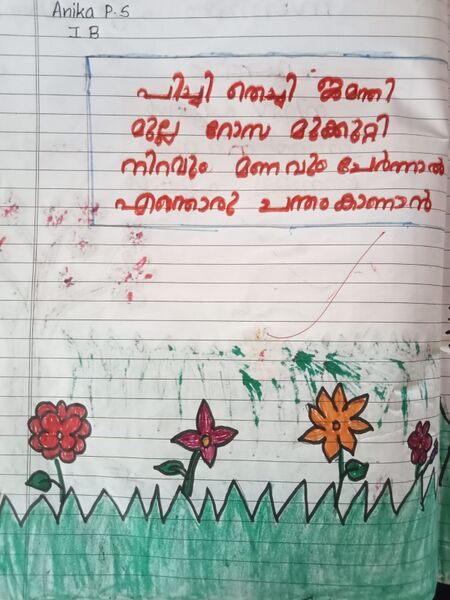 Anika P.S
I B
പിച്ചി തെച്ചി ജമന്തി
മുല്ല റോസ മുക്കുറ്റി
നിറവും മണവും ചേർന്നാൽ
എന്തൊരു ചന്തം കാണാൻ